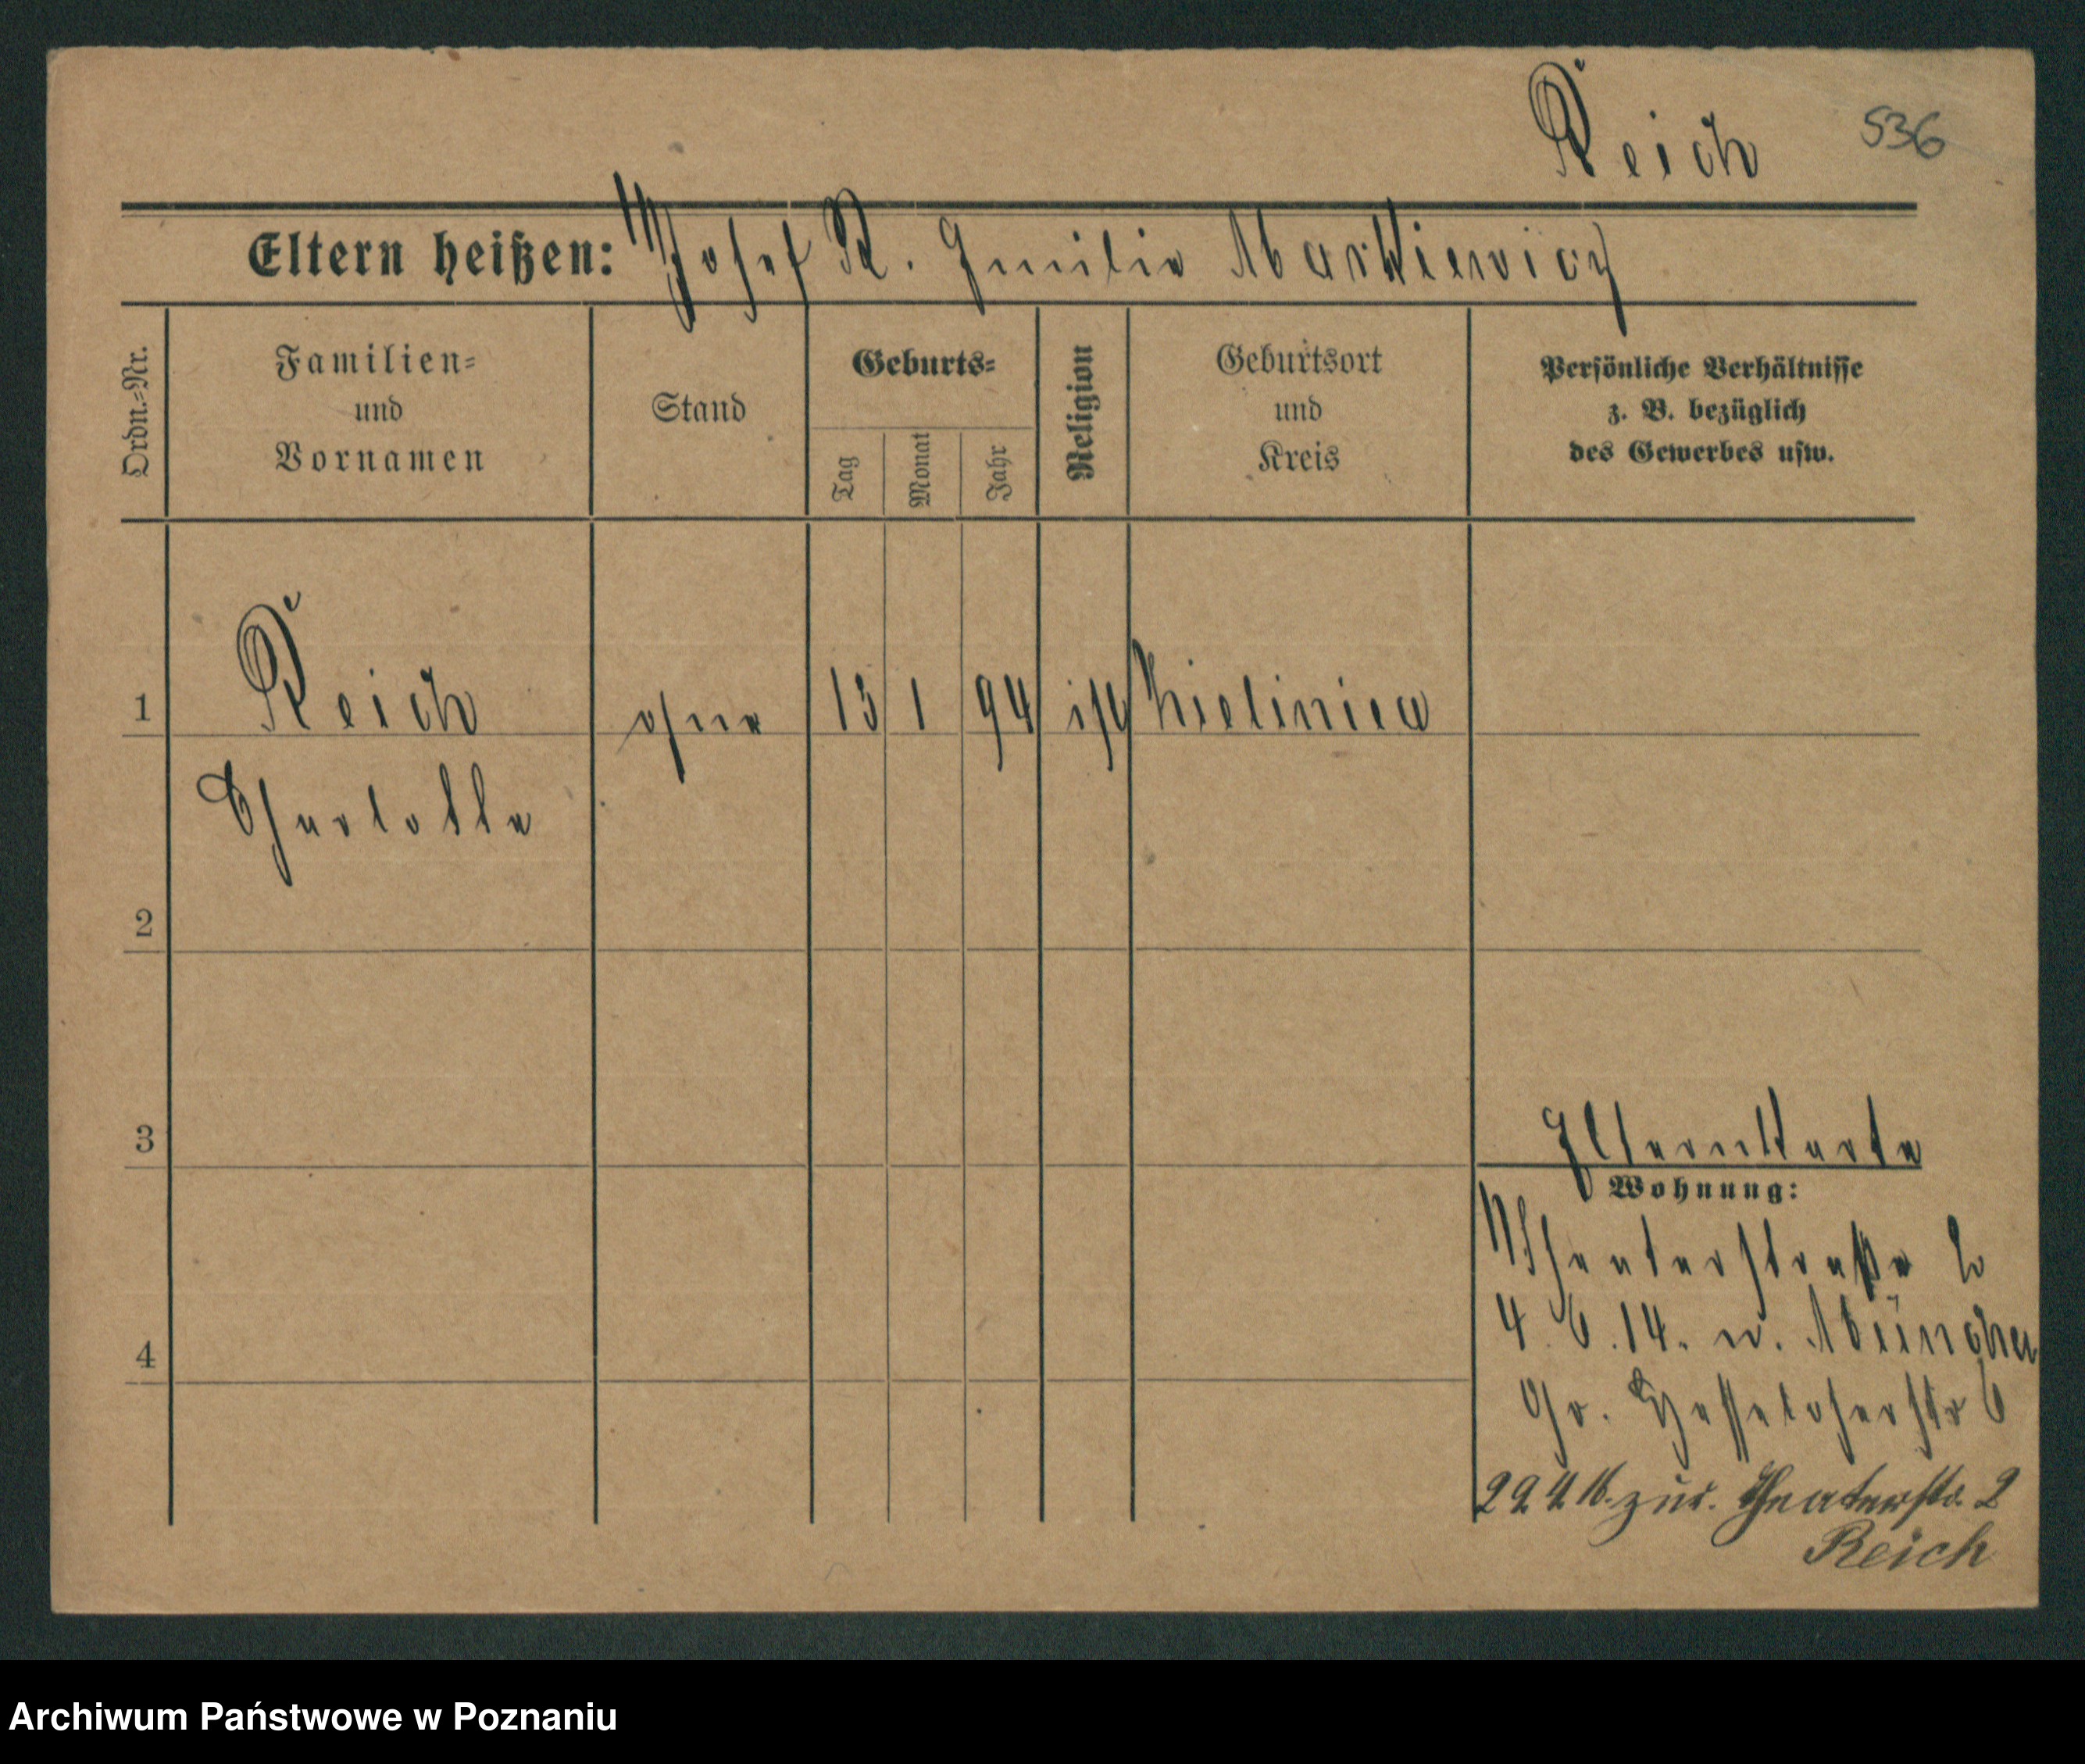 Reich 536
Eltern heißen: Josef R. Emilie Markiewicz
Ordn.-Nr.
Familien=
und
Vornamen
Stand
Geburts=
Tag
Monat
Jahr
Religion
Geburtsort
und
Kreis
Persönliche Verhältnisse
z. B. bezüglich
des Gewerbes usw.
1 Reich ohne 13 1 94 isr
Charlotte
2
3
Elternkarte
Wohnung:
Theaterstraße 2
4
4. 6. 14. n. München
Gr. Hesseloherstr 6
zur. Theaterstr. 2
Reich
Archiwum Państwowe w Poznaniu